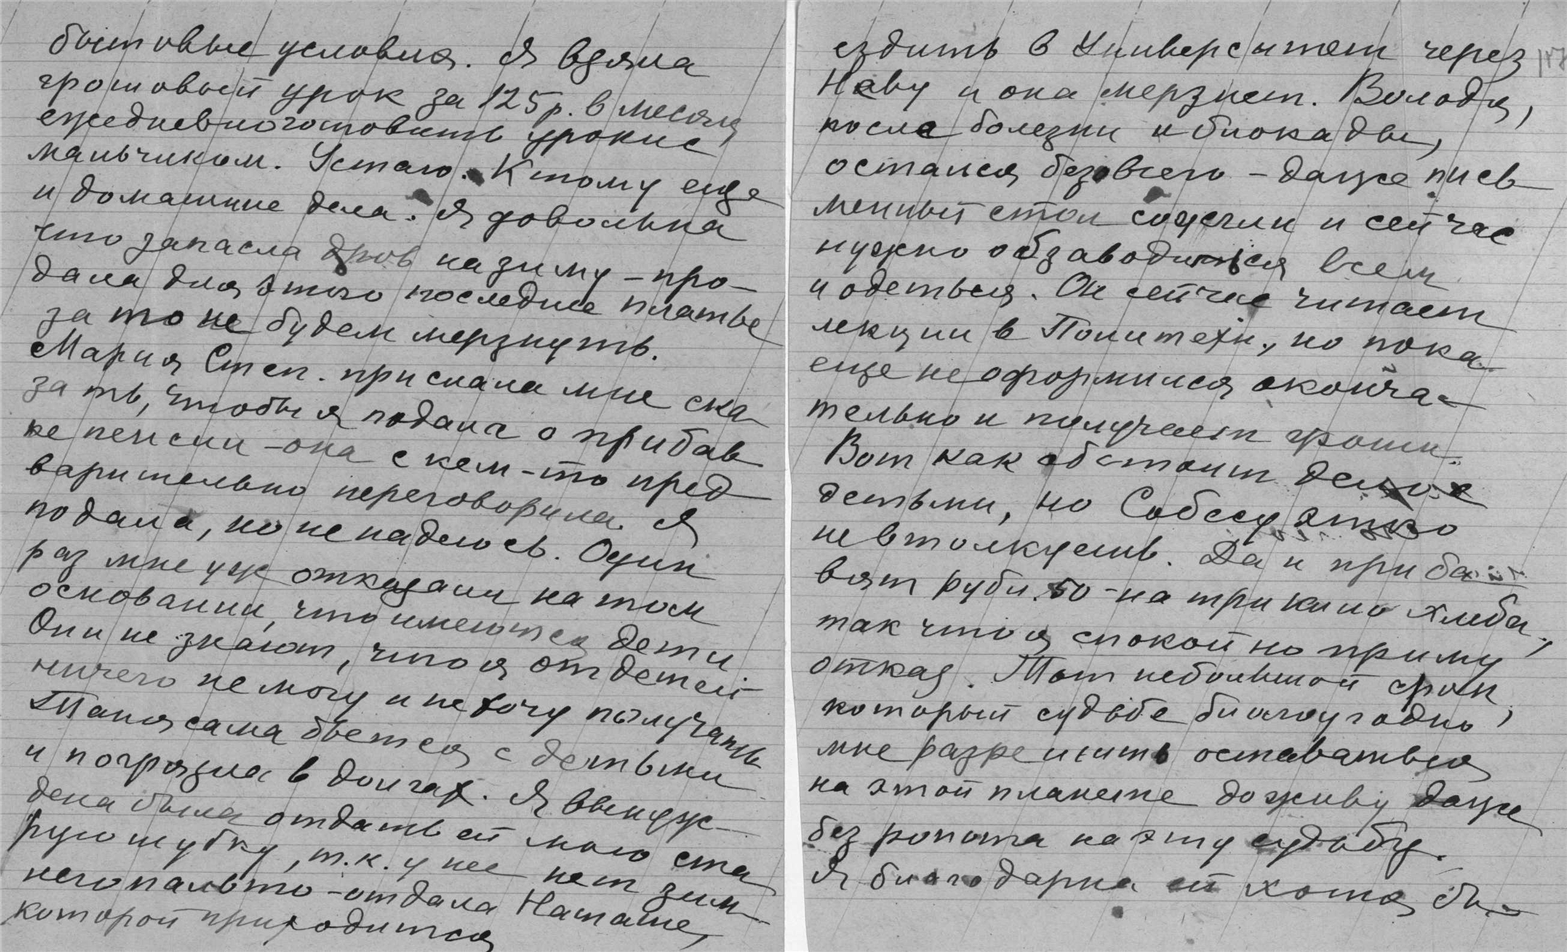 бытовые условия. Я взяла
грошовый урок за 125 р. в месяц
ежедневно готовить уроки с
мальчиком. Устаю. К тому еще
и домашние дела. Я довольна
что запасла дров на зиму – про-
дала для этого последнее платье
за то не будем мерзнуть.
Мария Степ. прислала мне ска
зать, чтобы я подала о прибав
ке пенсии – она с кем-то пред
варительно переговорила. Я
подала, но не надеюсь. Один
раз мне уж отказали на том
основании, что имеются дети
Они не знают, что я от детей
ничего не могу и не хочу получать
Таня сама бьется с детьми
и погрязла в долгах. Я вынуж-
дена была отдать ей мою ста
рую шубку, т.к. у нее нет зим-
него пальто – отдала Наташе,
которой приходится
ездить в Университет через
Неву и она мерзнет. Володя,
после болезни и блокады,
остался без всего – даже пись
менный стол сожгли и сейчас
нужно обзаводиться всем
и одеться. Он сейчас читает
лекции в Политехн., но пока
еще не оформился оконча-
тельно и получает гроши.
Вот как обстоит дело с
детьми, но Собесу этого
не втолкуешь. Да и приба
вят рубл. 50 – на три кило хлеба,
так что я спокойно приму
отказ. Тот небольшой срок,
который судьбе благоугодно
мне разрешить оставаться
на этой планете доживу даже
без ропота на эту судьбу.
Я благодарна ей хотя бы